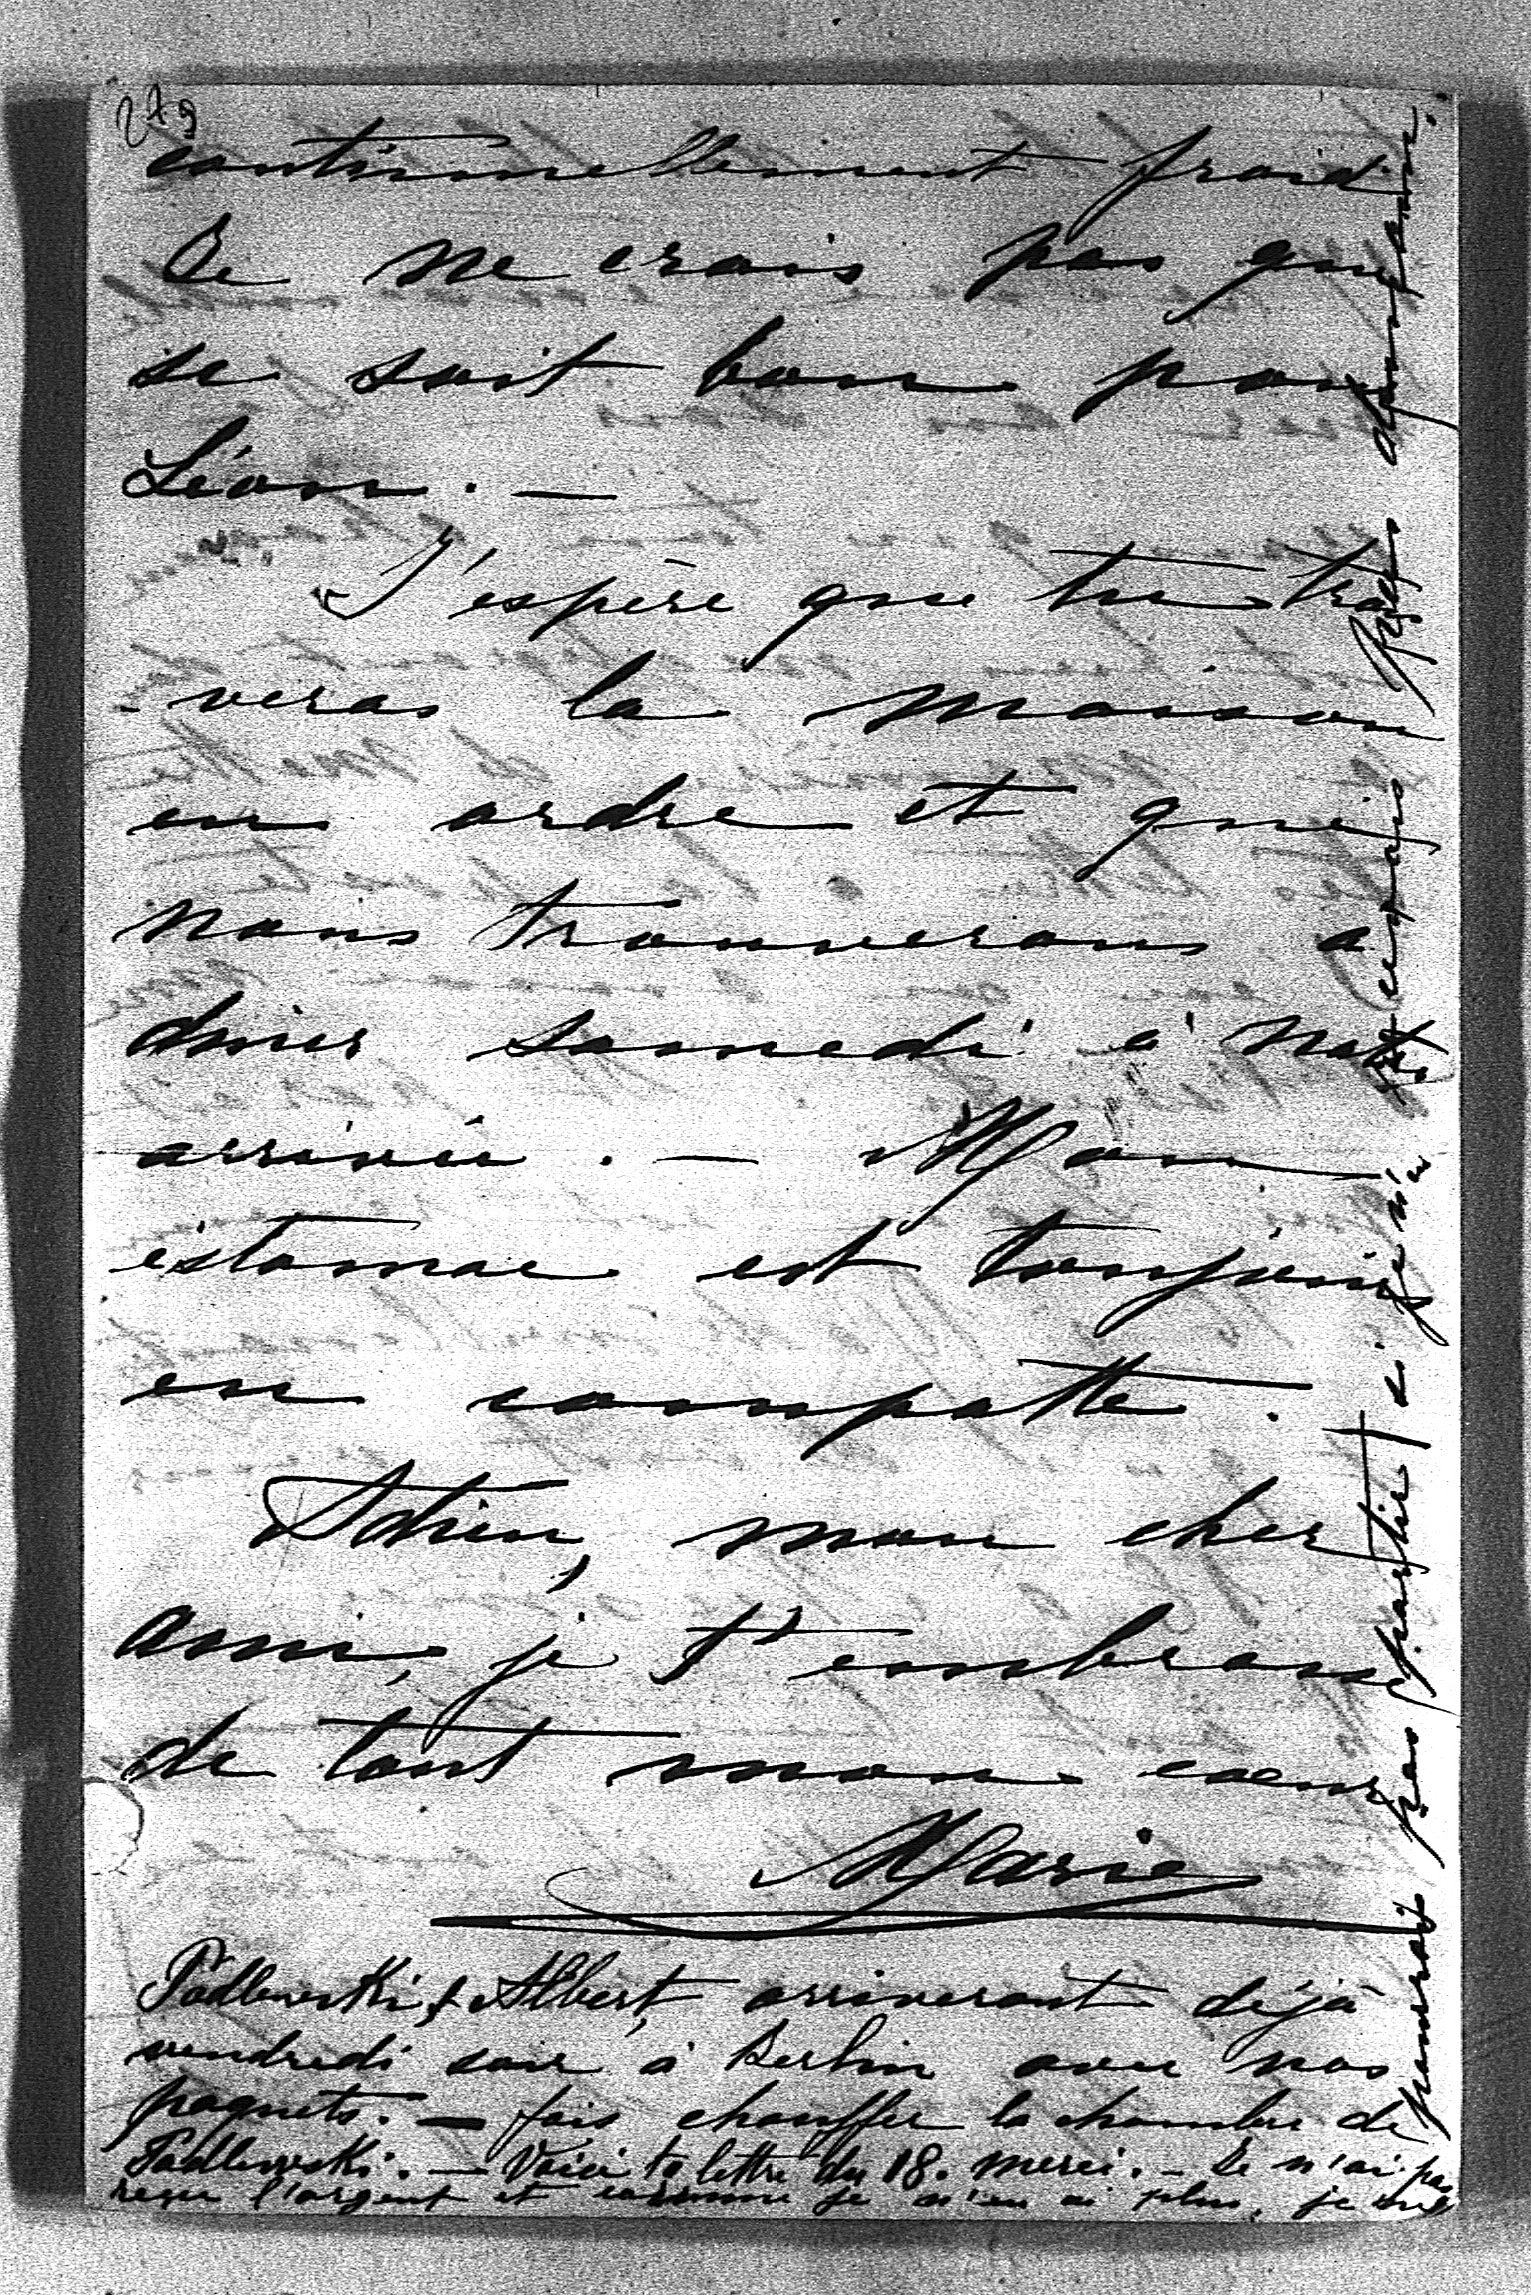 279
continuellement froid
Je ne crois pas que
se soit bon pour
Léon. —
J'espère que tu trou
-veras la maison
en ordre et que
nous trouverons a
diner samedi à notre
arrivée. — Mon
éstomac est toujours
en compotte.
Adieu, mon cher
ami, je t'embrasse
de tout mon coeur
Marie
Padlewski & Albert, arriveront déjà
vendredi soir à Berlin avec nos
paquets. — fais chauffer la chambre de
Padlewski. — Voici ta lettre du 18. merci. — Je n'ai pas
reçu l'argent et comme je n'en ai plus, je ne
pourrais pas partir si je n'en reçois pas demain.